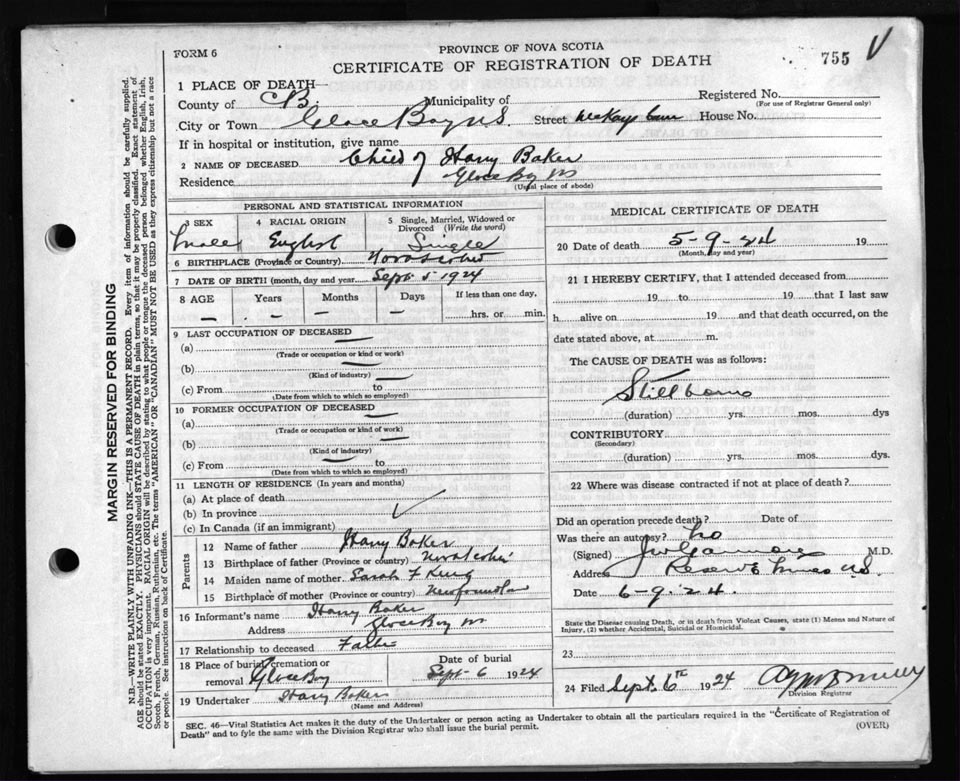 FORM 6
PROVINCE OF NOVA SCOTIA
CERTIFICATE OF REGISTRATION OF DEATH
755 V
1 PLACE OF DEATH—
County of C B Municipality of Registered No.
(For use of Registrar General only)
City or Town Glace Bay N S. Street McKays House No.
If in hospital or institution, give name
2 NAME OF DECEASED Child of Harry Baker
Residence Glace Bay NS
(Usual place of abode)
PERSONAL AND STATISTICAL INFORMATION
3 SEX 4 RACIAL ORIGIN 5 Single, Married, Widowed or Divorced (Write the word)
Male English Single
6 BIRTHPLACE (Province or Country) Nova Scotia
7 DATE OF BIRTH (month, day and year) Sept 5 1924
8 AGE Years Months Days If less than one day,
— — — — hrs. or min.
9 LAST OCCUPATION OF DECEASED —
(a)
(Trade or occupation or kind or work)
(b)
(Kind of industry) —
(c) From to
(Date from which to which so employed)
10 FORMER OCCUPATION OF DECEASED —
(a)
(Trade or occupation or kind of work)
(b) —
(Kind of industry)
(c) From — to
(Date from which to which so employed)
11 LENGTH OF RESIDENCE (In years and months)
(a) At place of death
(b) In province
(c) In Canada (if an immigrant)
Parents
12 Name of father Harry Baker
13 Birthplace of father (Province or country) Nova Scotia
14 Maiden name of mother Sarah F King
15 Birthplace of mother (Province or country) Newfoundlan
16 Informant's name Harry Baker
Address Glace Bay NS
17 Relationship to deceased Father
18 Place of burial, cremation or removal Glace Bay Date of burial Sept 6 1924
19 Undertaker Harry Baker
(Name and Address)
MEDICAL CERTIFICATE OF DEATH
20 Date of death 5-9-24 19
(Month, day and year)
21 I HEREBY CERTIFY, that I attended deceased from
19 to 19 that I last saw
h alive on 19 and that death occurred, on the
date stated above, at m.
The CAUSE OF DEATH was as follows:
Stillborn
(duration) yrs. mos. dys
CONTRIBUTORY
(Secondary)
(duration) yrs. mos. dys.
22 Where was disease contracted if not at place of death?
Did an operation precede death? Date of
Was there an autopsy? no
(Signed) M.D.
Address Reserve Mines N.S.
Date 6-9-24.
State the Disease causing Death, or in death from Violent Causes, state (1) Means and Nature of
Injury, (2) whether Accidental, Suicidal or Homicidal.
23
24 Filed Sept. 6th 1924
Division Registrar
SEC. 46—Vital Statistics Act makes it the duty of the Undertaker or person acting as Undertaker to obtain all the particulars required in the "Certificate of Registration of
Death" and to fyle the same with the Division Registrar who shall issue the burial permit. (OVER)
MARGIN RESERVED FOR BINDING
N.B.—WRITE PLAINLY WITH UNFADING INK—THIS IS A PERMANENT RECORD. Every item of information should be carefully supplied.
AGE should be stated EXACTLY. PHYSICIANS should STATE CAUSE OF DEATH in plain terms, so that it may be properly classified. Exact statement of
OCCUPATION is very important. RACIAL ORIGIN will be described by stating to what people or tongue the deceased person belonged whether English, Irish,
Scotch, French, German, Russian, Ruthenian, etc. The terms "AMERICAN" or "CANADIAN" MUST NOT BE USED as they express citizenship but not a race
or people. See instructions on back of Certificate.